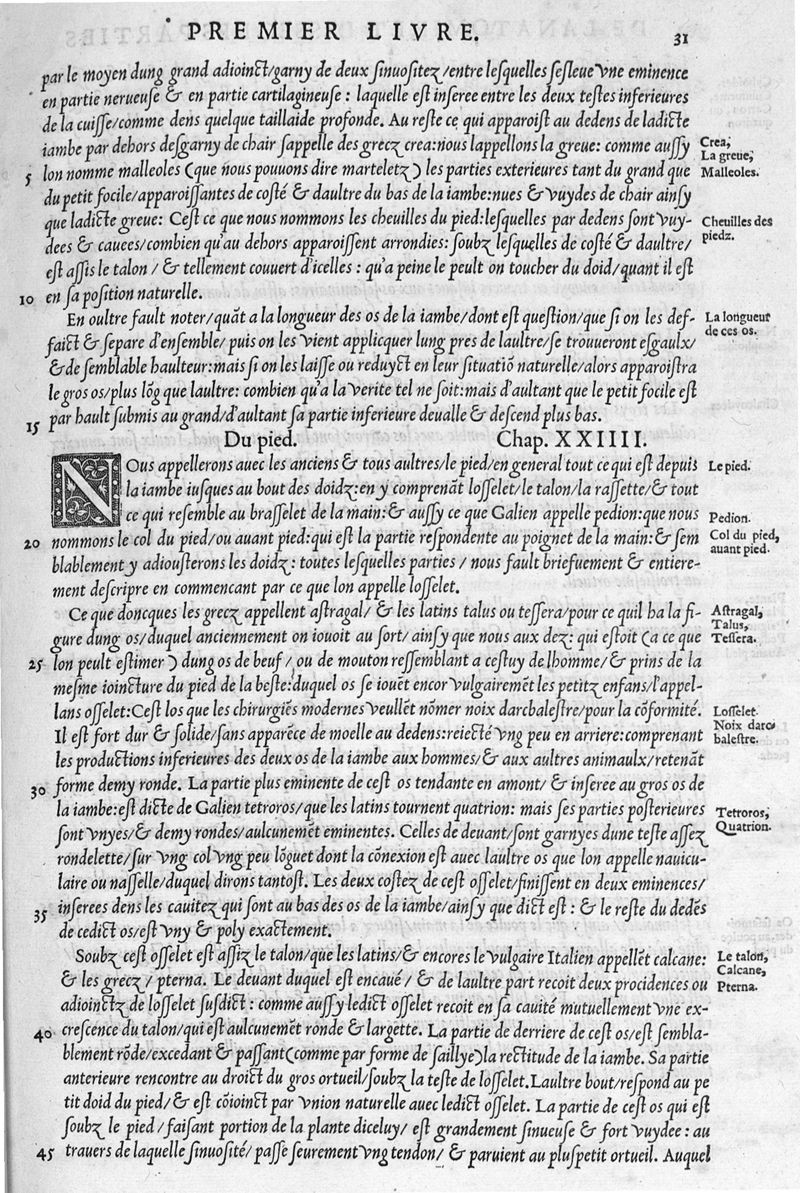 PREMIER LIVRE. 31
par le moyen dung grand adioinct/garny de deux sinuositez/entre lesquelles sesleue vne eminence
en partie nerueuse & en partie cartilagineuse : laquelle est inseree entre les deux testes inferieures
de la cuisse/comme dens quelque taillaide profonde. Au reste ce qui apparoist au dedens de ladicte
iambe par dehors desgarny de chair sappelle des grecz crea:nous lappellons la greue: comme aussy
Crea,
La greue,
5 lon nomme malleoles (que nous pouuons dire marteletz) les parties exterieures tant du grand que
Malleoles.
du petit focile/apparoissantes de costé & daultre du bas de la iambe:nues & vuydes de chair ainsy
que ladicte greue: Cest ce que nous nommons les cheuilles du pied:lesquelles par dedens sont vuy-
Cheuilles des
piedz.
dees & cauees/combien qu'au dehors apparoissent arrondies: soubz lesquelles de costé & daultre/
est assis le talon / & tellement couuert d'icelles : qu'a peine le peult on toucher du doid/quant il est
10 en sa position naturelle.
En oultre fault noter/quãt a la longueur des os de la iambe/dont est question/que si on les def-
La longueur
de ces os.
faict & separe d'ensemble/ puis on les vient applicquer lung pres de laultre/se trouueront esgaulx/
& de semblable haulteur:mais si on les laisse ou reduyct en leur situatiõ naturelle/alors apparoistra
le gros os/plus lõg que laultre: combien qu'a la verite tel ne soit:mais d'aultant que le petit focile est
15 par hault submis au grand/d'aultant sa partie inferieure deualle & descend plus bas.
Du pied. Chap. XXIIII.
NOus appellerons auec les anciens & tous aultres/le pied/en general tout ce qui est depuis
Le pied.
la iambe iusques au bout des doidz:en y comprenãt losselet/le talon/la rassette/& tout
ce qui resemble au brasselet de la main:& aussy ce que Galien appelle pedion:que nous
Pedion.
20 nommons le col du pied/ou auant pied:qui est la partie respondente au poignet de la main:& sem
Col du pied,
auant pied.
blablement y adiousterons les doidz : toutes lesquelles parties / nous fault briefuement & entiere-
ment descripre en commencant par ce que lon appelle losselet.
Ce que doncques les grecz appellent astragal/ & les latins talus ou tessera/pour ce quil ha la fi-
Astragal,
Talus,
Tessera.
gure dung os/duquel anciennement on iouoit au sort/ainsy que nous aux dez: qui estoit (a ce que
25 lon peult estimer) dung os de beuf / ou de mouton ressemblant a cestuy de lhomme/& prins de la
mesme ioincture du pied de la beste:duquel os se iouẽt encor vulgairemẽt les petitz enfans/l'appel-
lans osselet:Cest los que les chirurgiẽs modernes veullẽt nõmer noix darcbalestre/pour la cõformité.
Losselet.
Noix darc
balestre.
Il est fort dur & solide/sans apparẽce de moelle au dedens:reiecté vng peu en arriere:comprenant
les productions inferieures des deux os de la iambe aux hommes/& aux aultres animaulx/retenãt
30 forme demy ronde. La partie plus eminente de cest os tendante en amont/ & inseree au gros os de
la iambe:est dicte de Galien tetroros/que les latins tournent quatrion: mais ses parties posterieures
Tetroros,
Quatrion.
sont vnyes/& demy rondes/aulcunemẽt eminentes. Celles de deuant/sont garnyes dune teste assez
rondelette/sur vng col vng peu lõguet dont la cõnexion est auec laultre os que lon appelle nauicu-
laire ou nasselle/duquel dirons tantost. Les deux costez de cest osselet/finissent en deux eminences/
35 inserees dens les cauitez qui sont au bas des os de la iambe/ainsy que dict est : & le reste du dedẽs
de cedict os/est vny & poly exactement.
Soubz cest osselet est assiz le talon/que les latins/& encores le vulgaire Italien appellẽt calcane:
Le talon,
Calcane,
Pterna.
& les grecz / pterna. Le deuant duquel est encaué/ & de laultre part recoit deux procidences ou
adioinctz de losselet susdict : comme aussy ledict osselet recoit en sa cauité mutuellement vne ex-
40 crescence du talon/qui est aulcunemẽt ronde & largette. La partie de derriere de cest os/est sembla-
blement rõde/excedant & passant(comme par forme de saillye)la rectitude de la iambe. Sa partie
anterieure rencontre au droict du gros ortueil/soubz la teste de losselet.Laultre bout/respond au pe
tit doid du pied/& est cõioinct par vnion naturelle auec ledict osselet. La partie de cest os qui est
soubz le pied/faisant portion de la plante diceluy/ est grandement sinueuse & fort vuydee : au
45 trauers de laquelle sinuosité/ passe seurement vng tendon/ & paruient au plus petit ortueil. Auquel